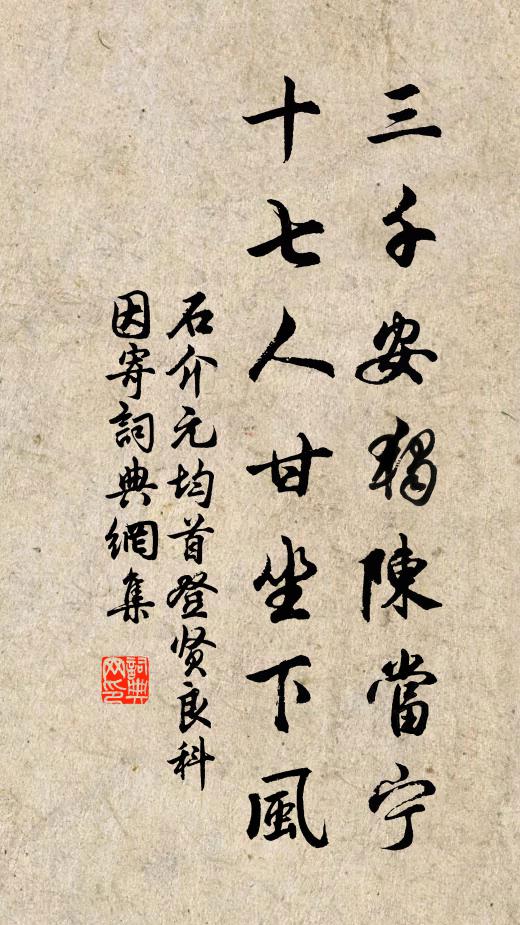 三千安獨陳當宁
十七人甘坐下風
石介元均首登贤良科
因寄詞典網集
詞典网印